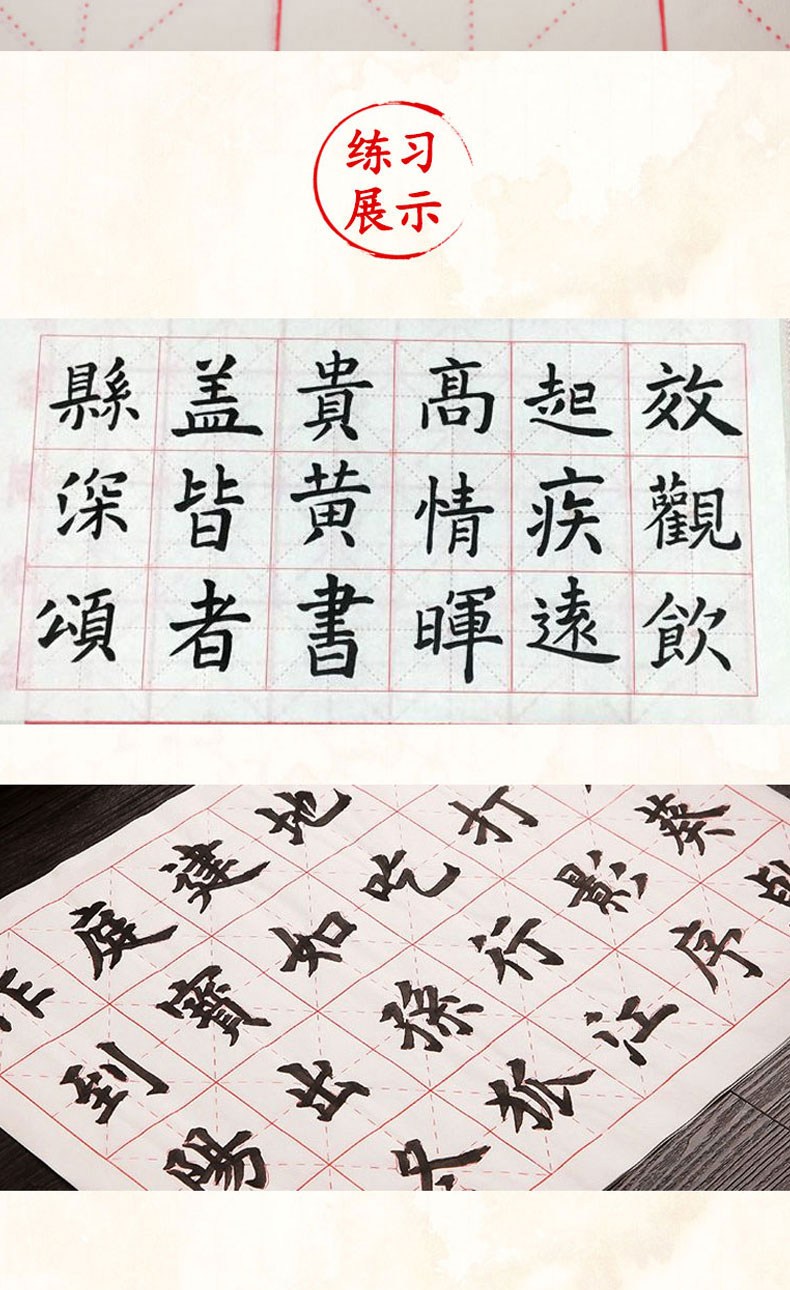 练习
展示
縣盖貴髙起效
深皆黄情疾觀
頌者書暉遠飲
地打葵
建吃影
庭如行序
寳徐江
到出旅
陽